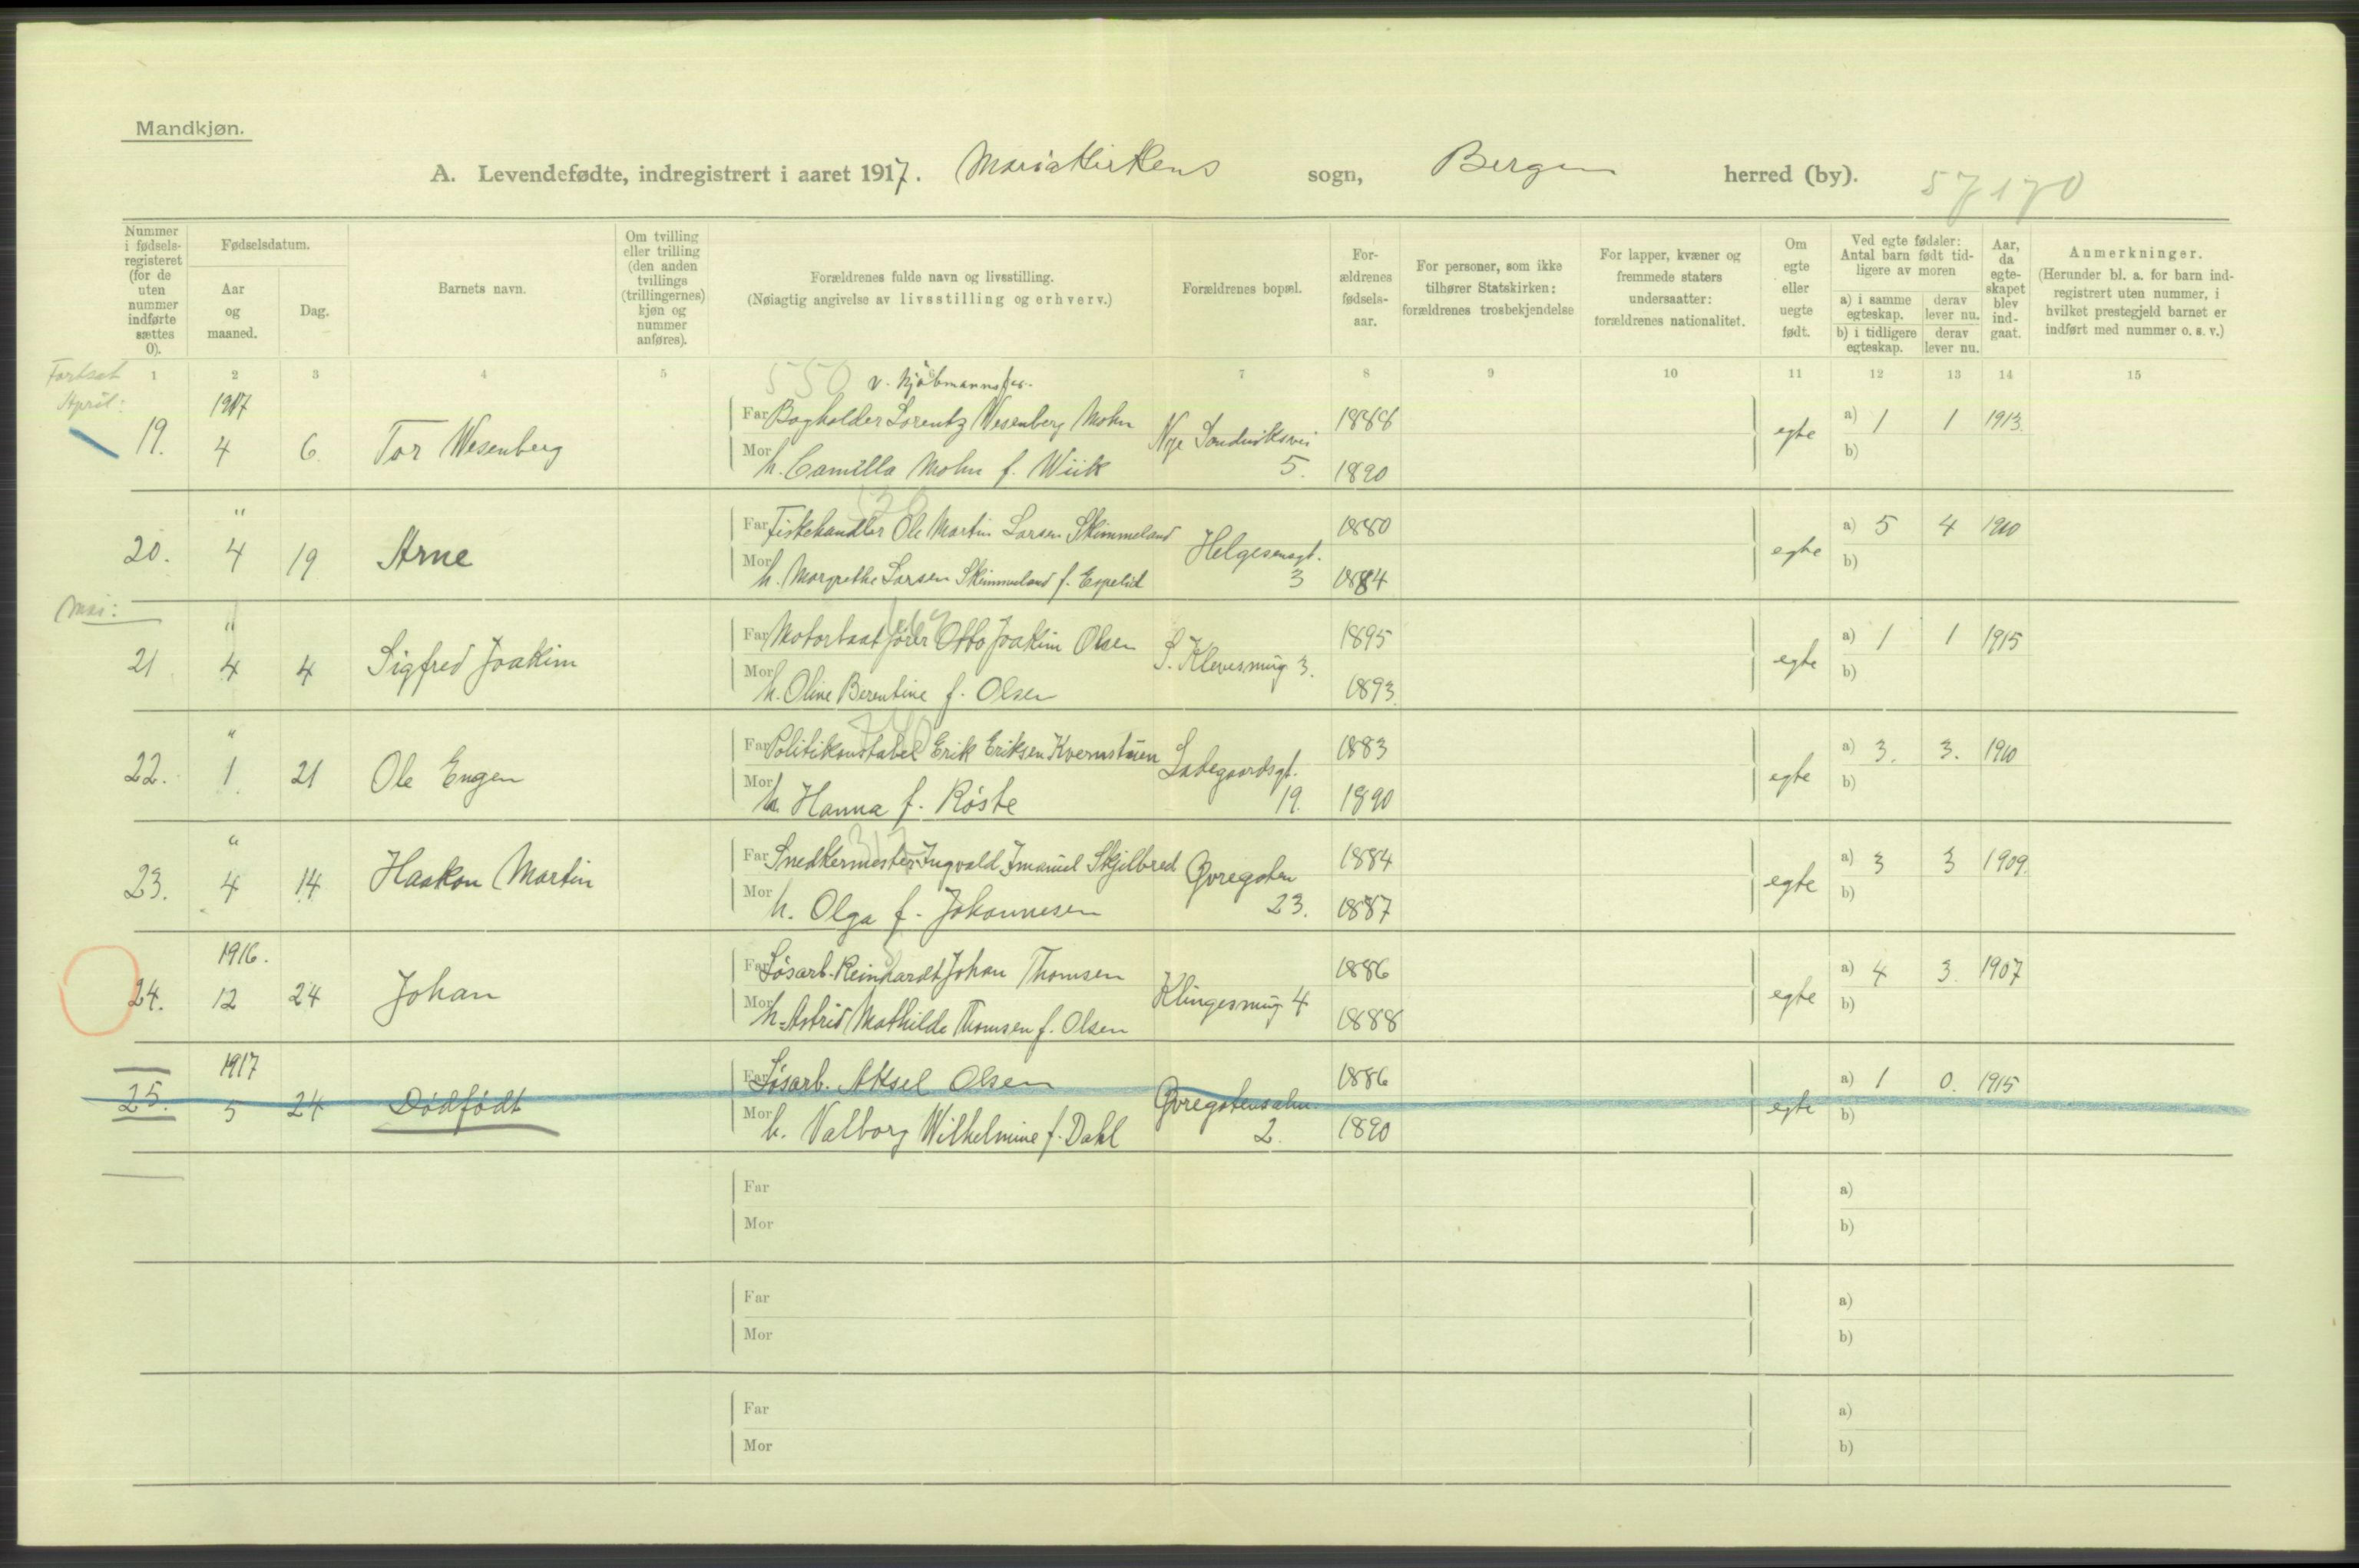 Mandkjøn.
A. Levendefødte, indregistrert i aaret 1917. Mariakirkens sogn, Bergen herred (by). 57170
Nummer i fødsels-registeret (for de uten nummer indførte sættes 0).
Fødselsdatum.
Aar og maaned.
Dag.
Barnets navn.
Om tvilling eller trilling (den anden tvillings (trillingernes) kjøn og nummer anføres).
Forældrenes fulde navn og livsstilling.
(Nøiagtig angivelse av livsstilling og erhverv.)
Forældrenes bopæl.
For-ældrenes fødsels-aar.
For personer, som ikke tilhører Statskirken: forældrenes trosbekjendelse
For lapper, kvæner og fremmede staters undersaatter: forældrenes nationalitet.
Om egte eller uegte født.
Ved egte fødsler: Antal barn født tid-ligere av moren
a) i samme egteskap. derav lever nu.
b) i tidligere egteskap. derav lever nu.
Aar, da egte-skapet blev ind-gaat.
Anmerkninger.
(Herunder bl. a. for barn ind-registrert uten nummer, i hvilket prestegjeld barnet er indført med nummer o. s. v.)
Fortsat 1 2 3 4 5 6 7 8 9 10 11 12 13 14 15
April:
550 v. kjöbmannsfor.
1917
19. 4 6. Tor Wesenberg
Far Bogholder Lorentz Wesenberg Mohn Nye Sandviksvei 1888 egte a) 1 1 1913.
Mor h. Camilla Mohn f. Wiik 5. 1890 b)
"
20. 4 19 Arne
Far Fiskehandler Ole Martin Larsen Skimmeland Helgesensgt. 1880 egte a) 5 4 1910
Mor h. Margrethe Larsen Skimmeland f. Espelid 3 1884 b)
Mai:
"
21 4 4 Sigfred Joakim
Far Motorbaatfører Otto Joakim Olsen S. Klevesmug 3. 1895 egte a) 1 1 1915
Mor h. Oline Berentine f. Olsen 1893. b)
"
22. 1. 21 Ole Engen
Far Politikonstabel Erik Eriksen Kvernstuen Ladegaardsgt. 1883 egte a) 3. 3. 1910
Mor h. Hanna f. Röste 19. 1890 b)
"
23. 4 14 Haakon Martin
Far Snedkermester Ingvald Imanuel Skjelbred Øvregaten 1884 egte a) 3 3 1909.
Mor h. Olga f. Johannesen 23. 1887 b)
1916.
24. 12 24 Johan
Far Løsarb. Reinhardt Johan Thomsen Klingesmug 4 1886 egte a) 4 3. 1907
Mor h. Astrid Mathilde Thomsen f. Olsen 1888 b)
1917
25. 5 24 Dødfødt
Far Løsarb. Aksel Olsen Øvregatensalm. 1886 egte a) 1 0. 1915
Mor h. Valborg Wilhelmine f. Dahl 2. 1890 b)
Far a)
Mor b)
Far a)
Mor b)
Far a)
Mor b)